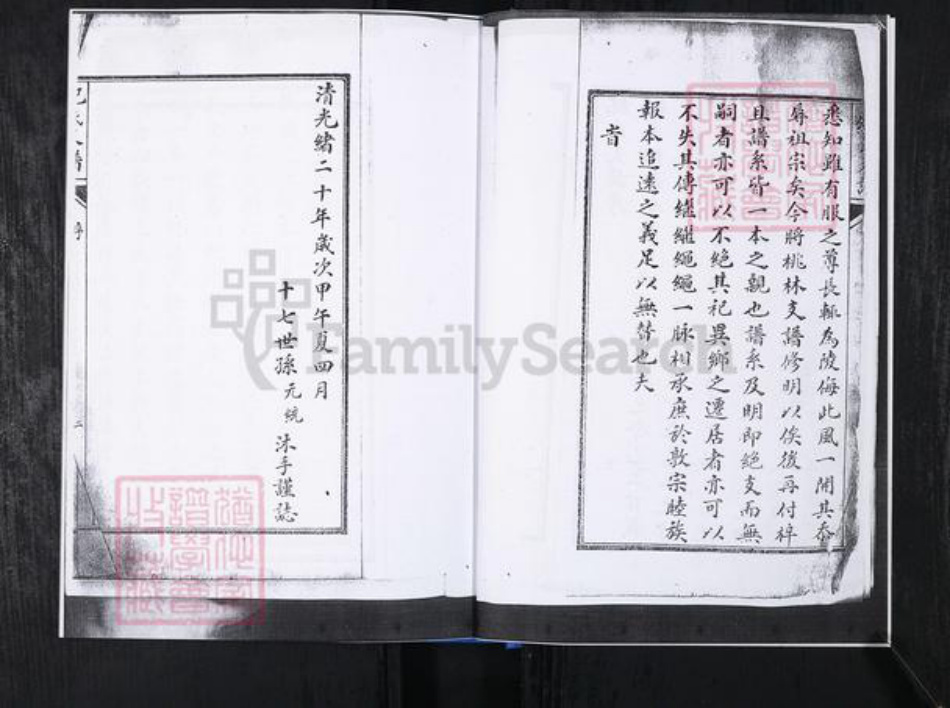 悉知雖有服之尊長輒為陵侮此風一開其忝
辱祖宗矣今將桃林支譜修明以俟後再付梓
且譜系皆一本之親也譜系及明即絕支而無
嗣者亦可以不絕其祀異鄉之遷居者亦可以
不失其傳繼繼繩繩一脉相承庶於敦宗睦族
報本追遠之義足以無替也夫
旹
清光緒二十年歲次甲午夏四月
十七世孫元統 沐手謹誌
序
FamilySearch